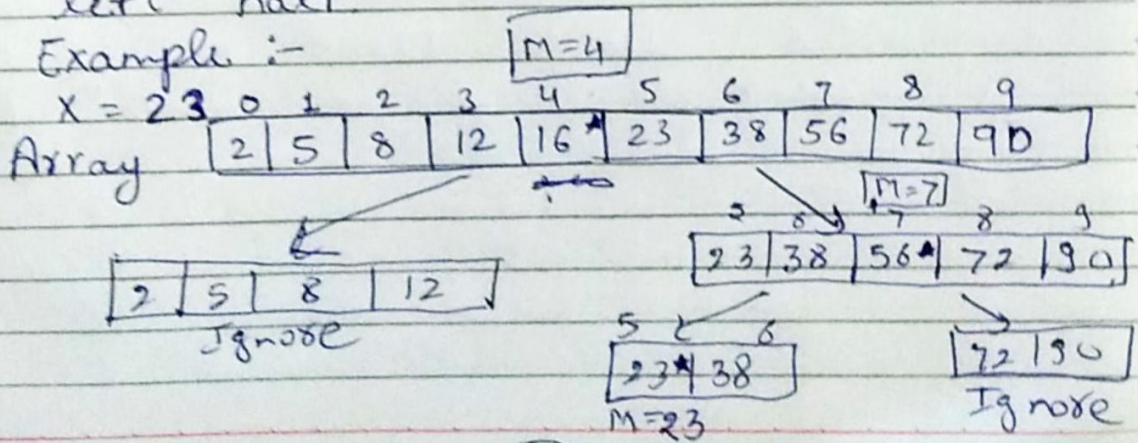 Example :-
M=4
X = 23
0 1 2 3 4 5 6 7 8 9
Array 2 5 8 12 16 23 38 56 72 90
M=7
5 6 7 8 9
23 38 56 72 90
2 5 8 12
Ignore
5 6
23 38
M=23
72 90
Ignore